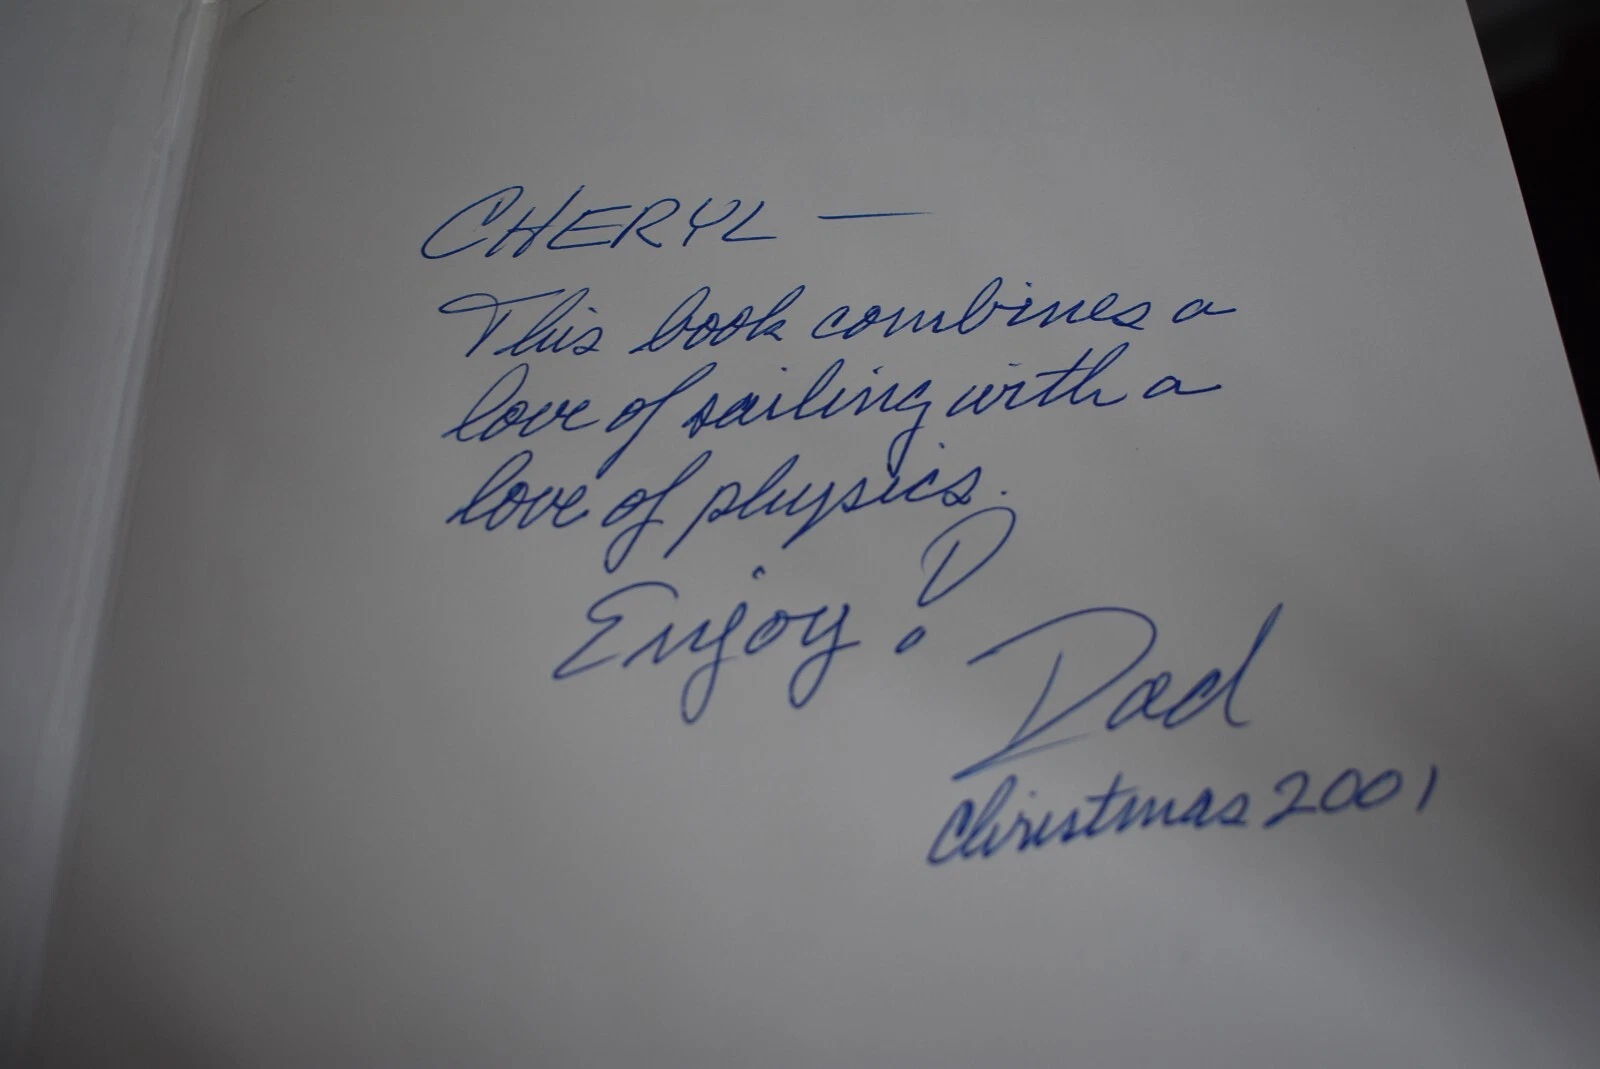 CHERYL —
This book combines a
love of sailing with a
love of physics.
Enjoy!
Dad
Christmas 2001